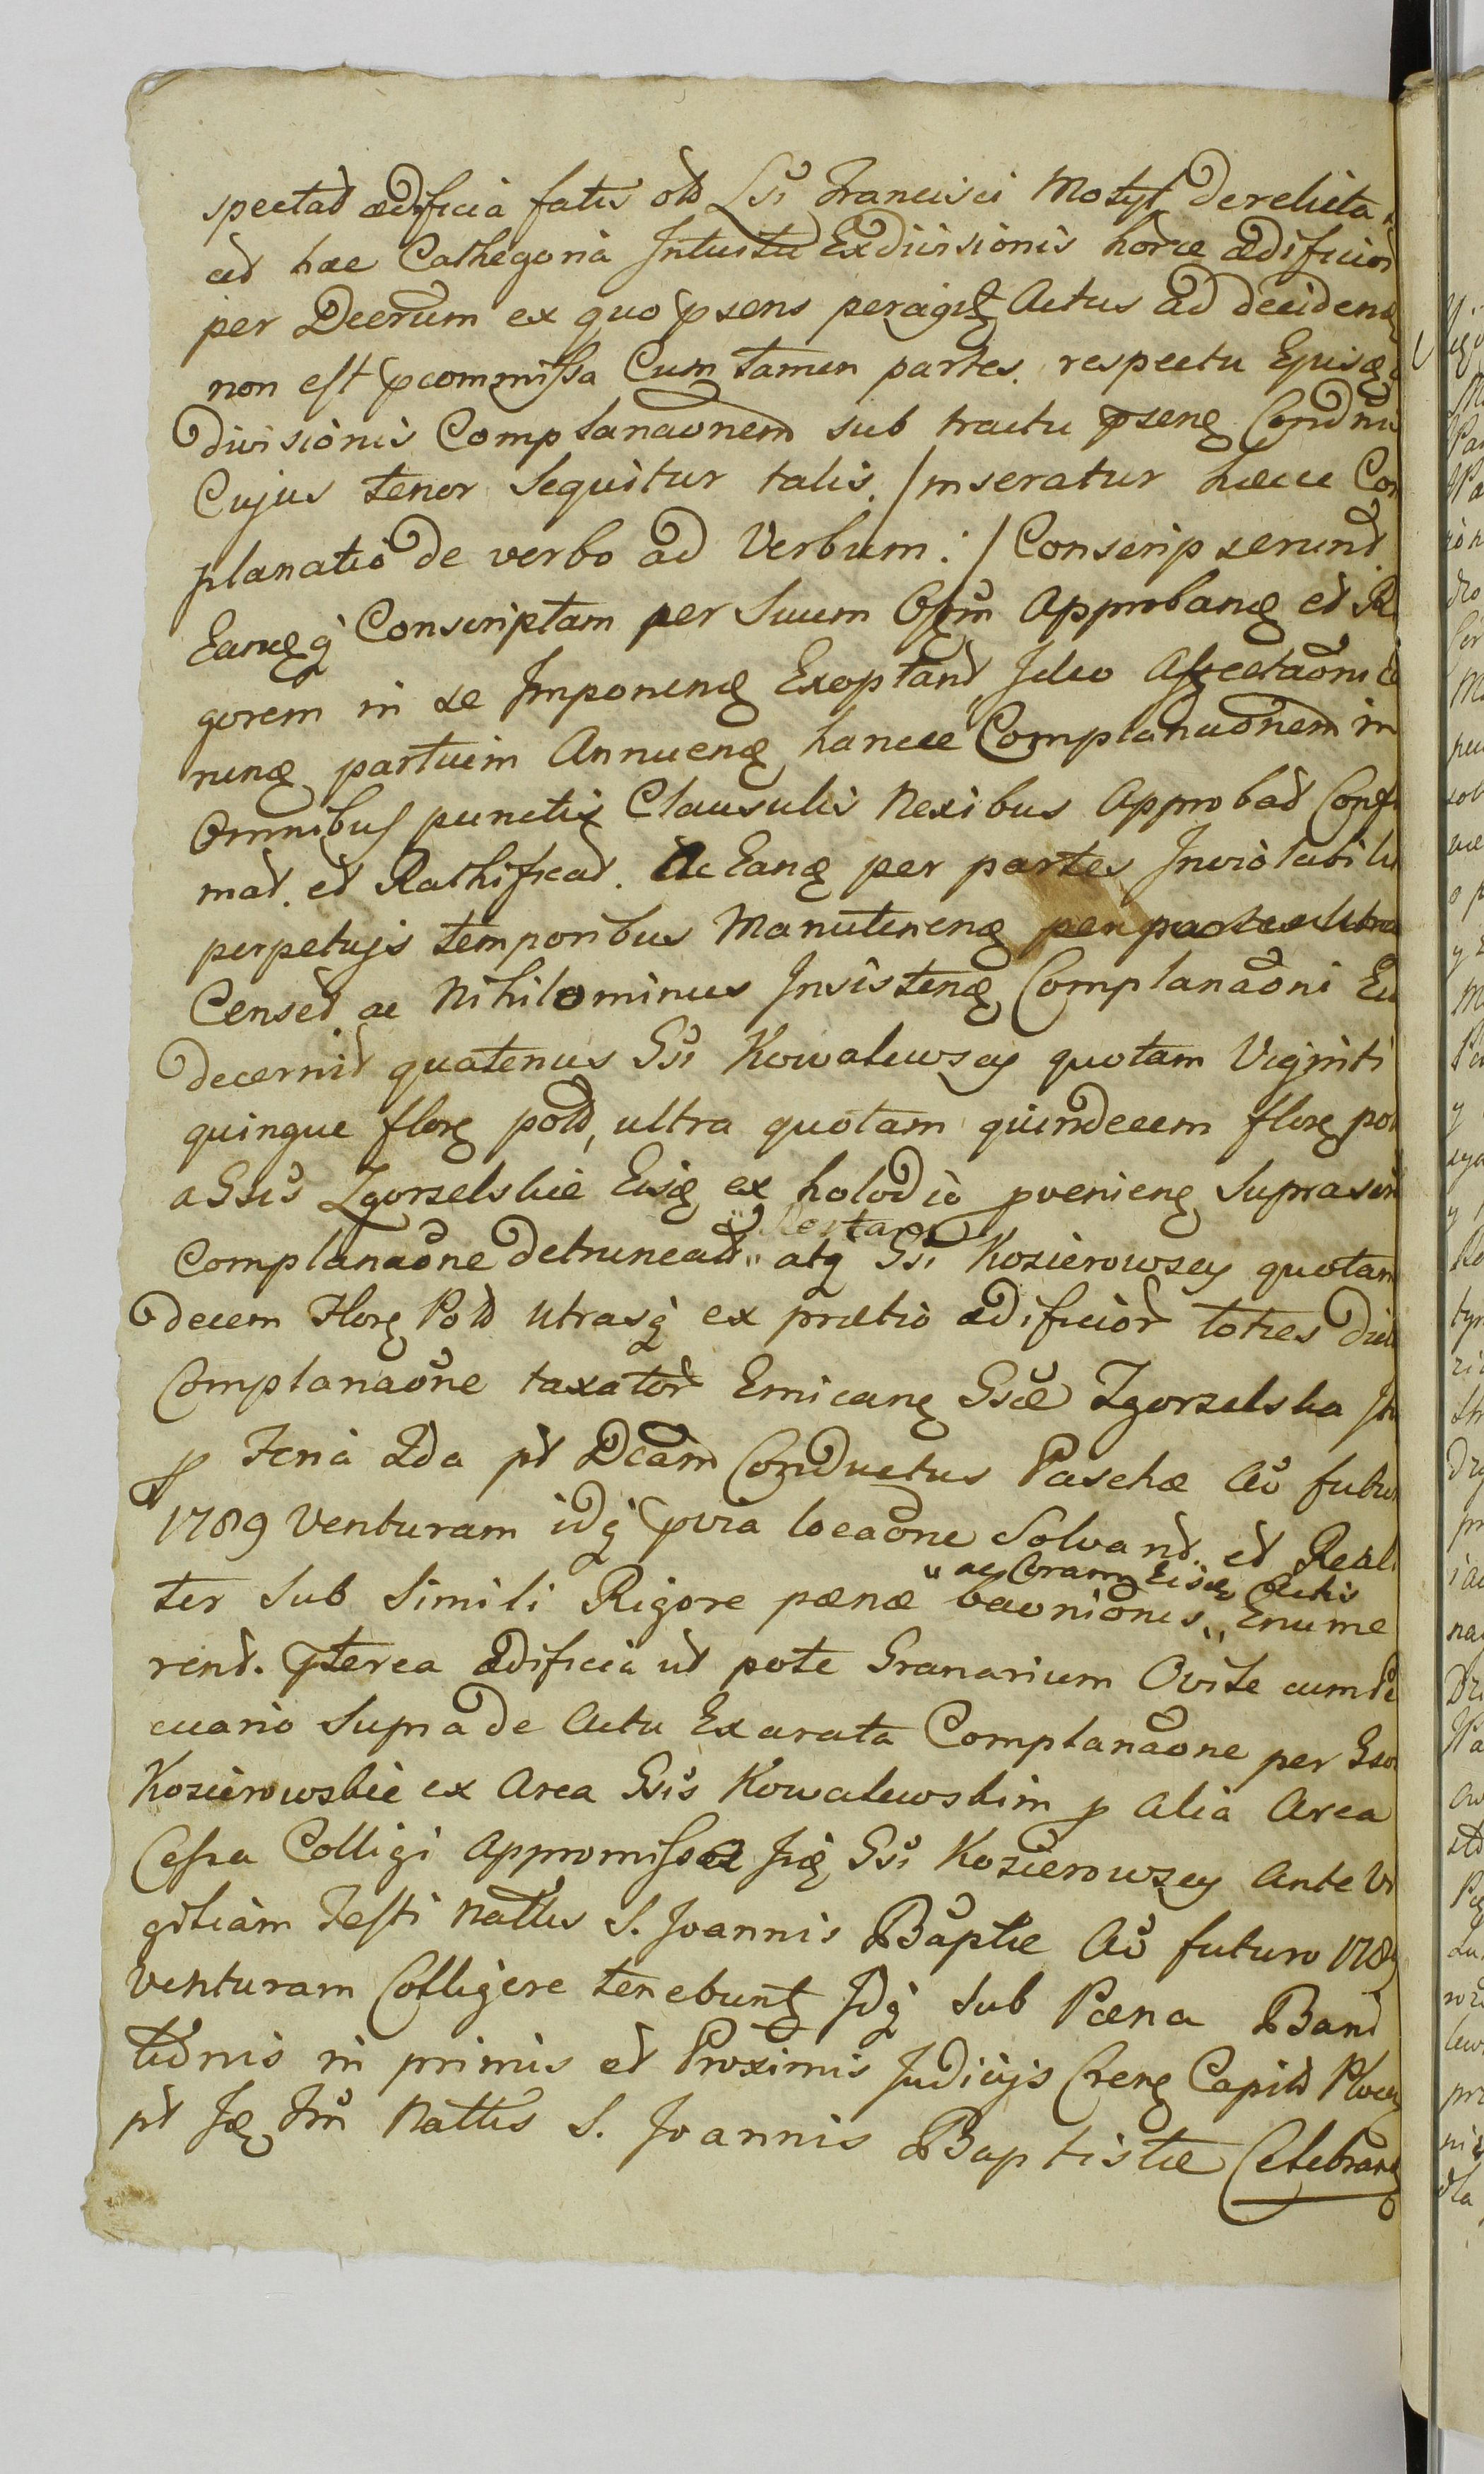 spectað ædificia fatis old Gsi Francisci Motyl derelicta
ad hæc Cathegoria Intuitu Exdivisionis horce ædificior
per Decrum ex quo psens peragit Actus ad decidend
non est pcommissa Cum tamen partes respectu Ejusq
divisionis Complanaonem sub tractu pseng Condni
Cujus tenor Sequitur talis. /inseratur hæcce Com
planatio de verbo ad Verbum: / Conscripserunt
Eamqq Conscriptam per Suum Offm Approbang et Ri
gorem in se Imponeng Exoptand, Ideo Affectaoni
nung partium Annueng hancce Complanaonem in
Omnibus punctis Clausulis Nexibus Approbat Confir
mat. et Rathificat. Ac Eang per partes Inviolabili
perpetujs temporibus Manuteneng per partes utra
Censet ac Nihilominus Insisteng Complanaoni Ei
decernit quatenus Gsi Kowalewscy quotam Viginti
quinque flor pold, ultra quotam quindecem flor pol
a Gsis Zgorzelskie Eisq ex holodio pvenieng Suprascri
Complanaone detruncað „ Restan
atq Gsi Kosierowscy quotam
decem Flor Pold utrasq ex prætio ædificior toties dict
Complanaone taxator Emicang Gsæ Zgorzelska
p Feria 2da pt Dcam Conductus Paschæ Ao futur
1789 Venturam idq pvia locaone Solvand. et Reali
ter Sub Simili Rigore pænæ baonionis „ ac Coram Eisq Actis „ Enume
rend. Pterea ædificia ut pote Granarium Ovile cum
cuario Supra de Actu Exarata Complanaone per Gso
Kosierowskie ex Area Gsis Kowalewskim p alia Area
Cessa Colligi appromissa Iq Gsi Kosierowscy Ante Vi
giliam Festi Nattis S. Joannis Baptæ Ao futuro 1789
Venturam Colligere tenebunt Idq sub Pæna Bani
tionis in primis et Proximis Judicijs Creng Capit Ploce
pt Fq Fm Nattis S. Joannis Baptistæ Celebrang